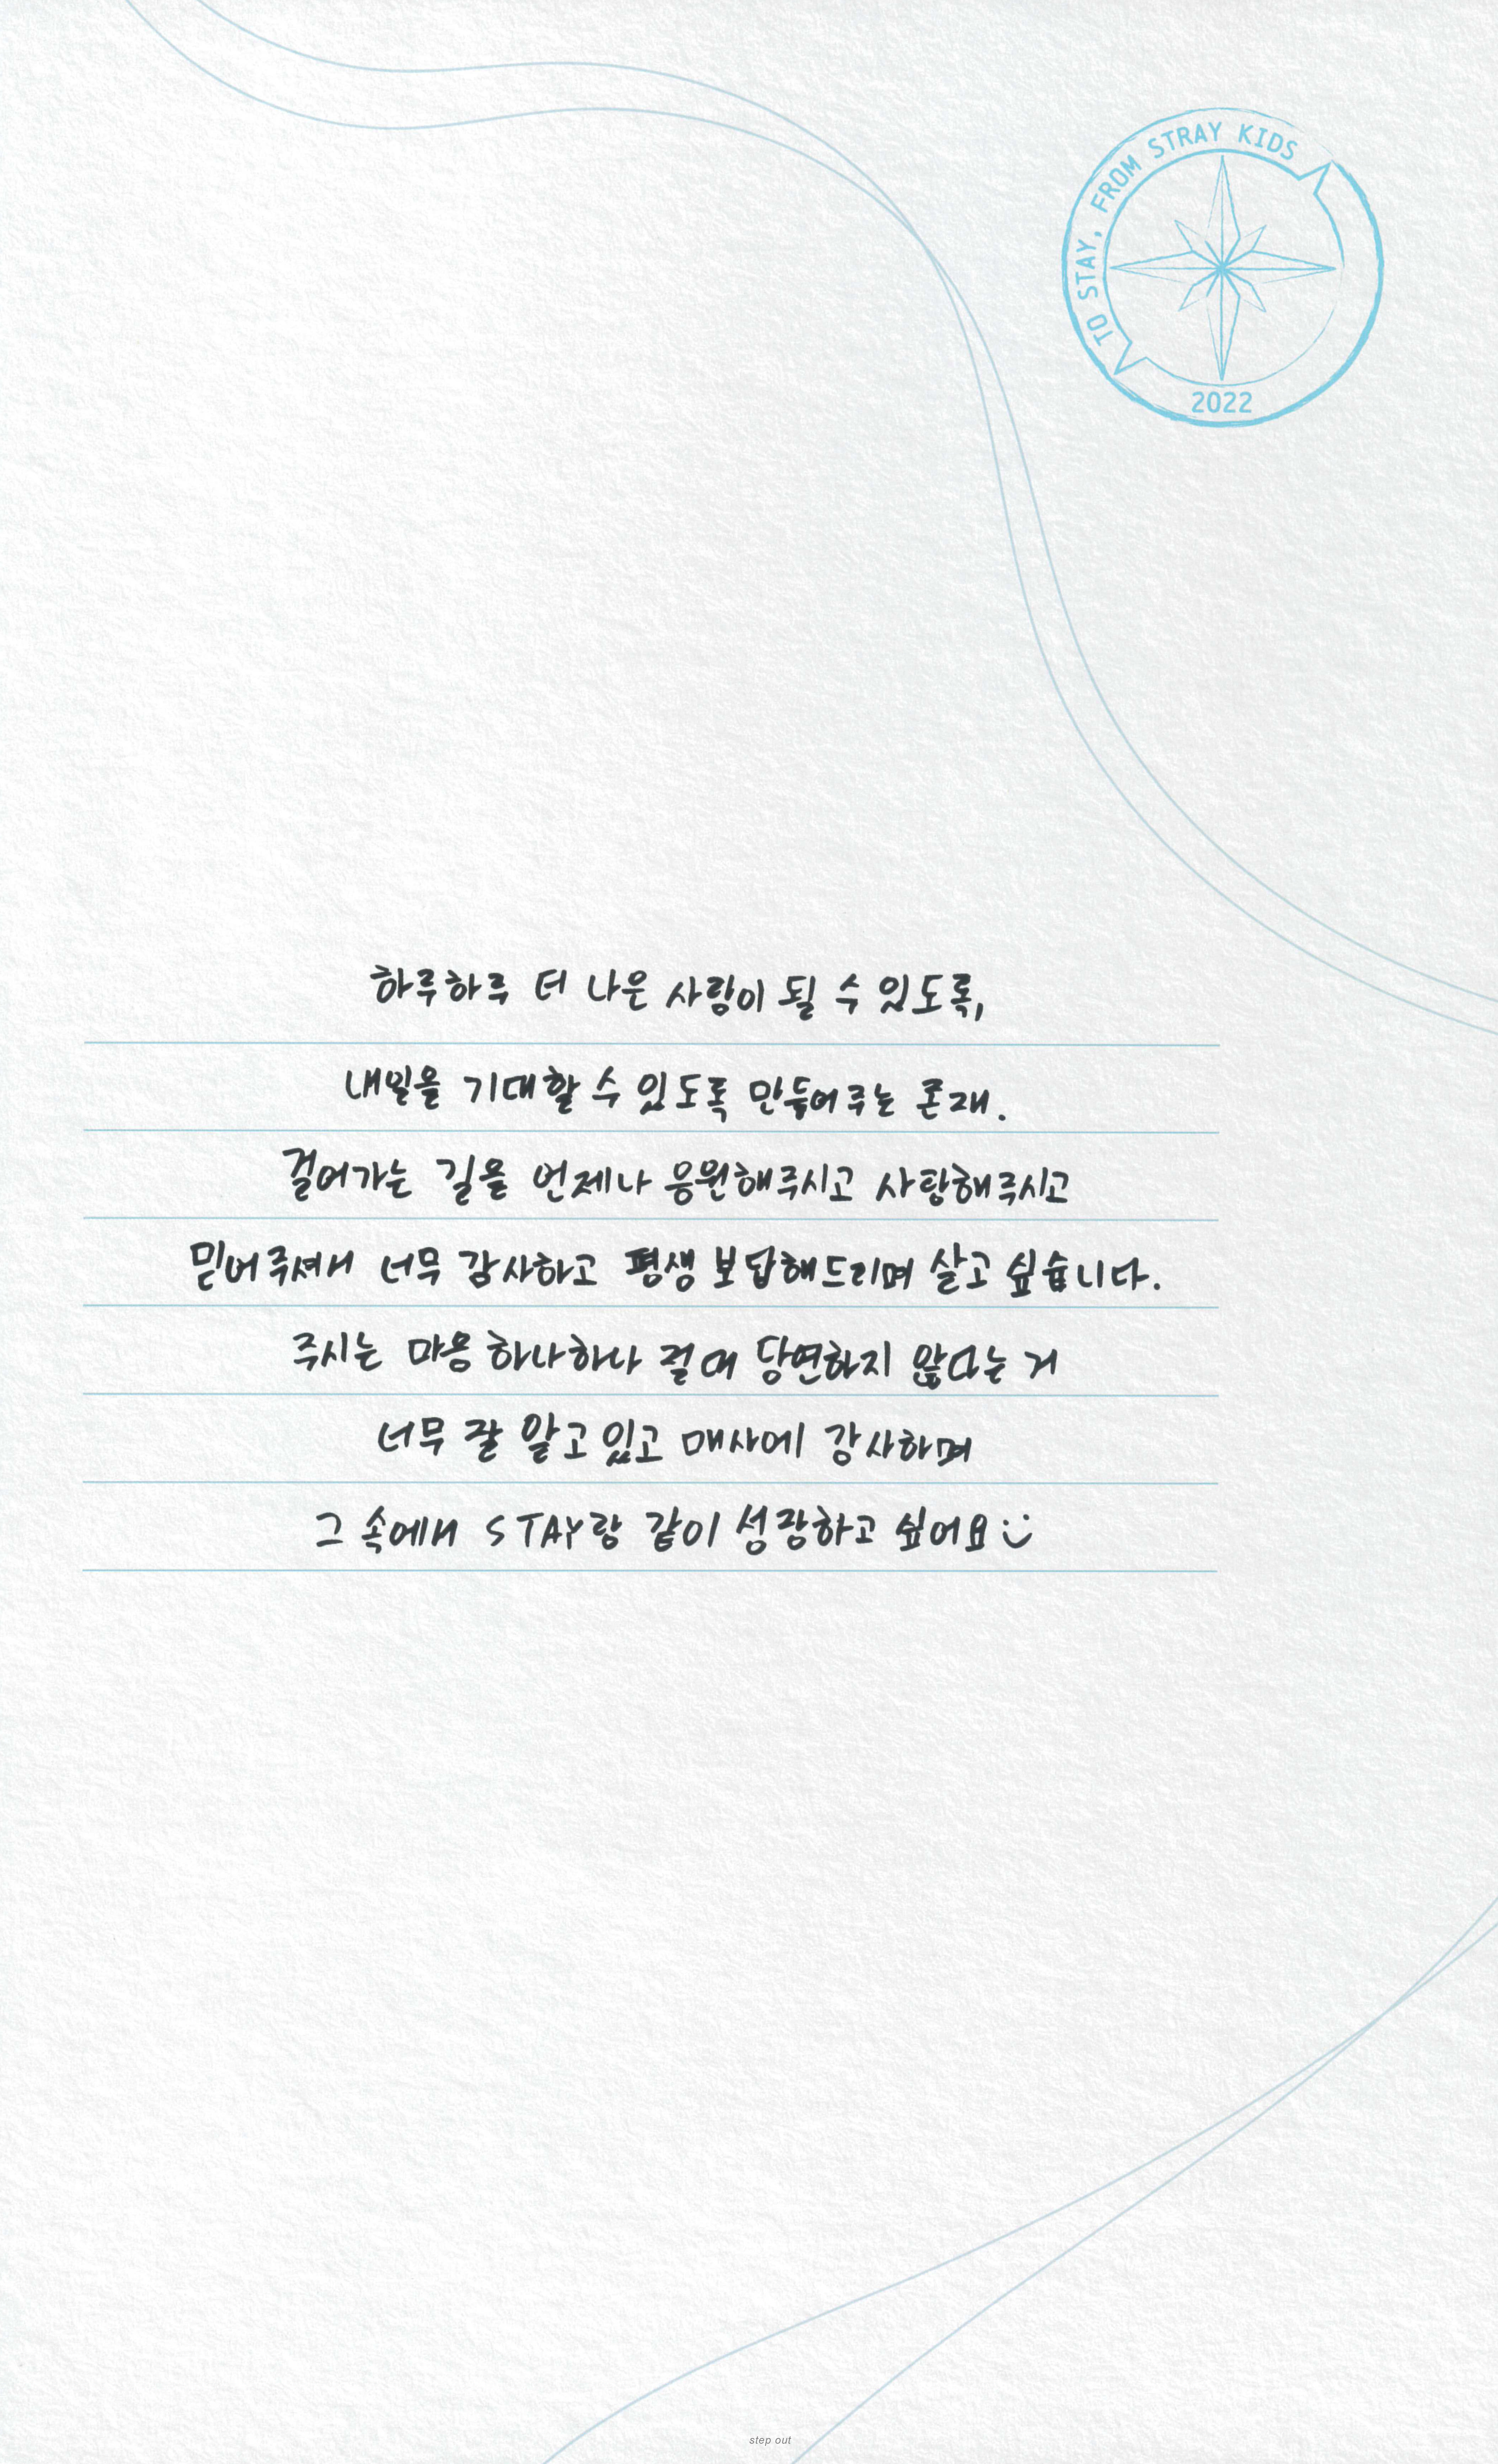 TO STAY, FROM STRAY KIDS
2022
하루하루 더 나은 사람이 될 수 있도록,
내일을 기대할 수 있도록 만들어주는 존재.
걸어가는 길을 언제나 응원해주시고 사랑해주시고
믿어주셔서 너무 감사하고 평생 보답해드리며 살고 싶습니다.
주시는 마음 하나하나 절대 당연하지 않다는 거
너무 잘 알고 있고 매사에 감사하며
그 속에서 STAY랑 같이 성장하고 싶어요 :)
step out